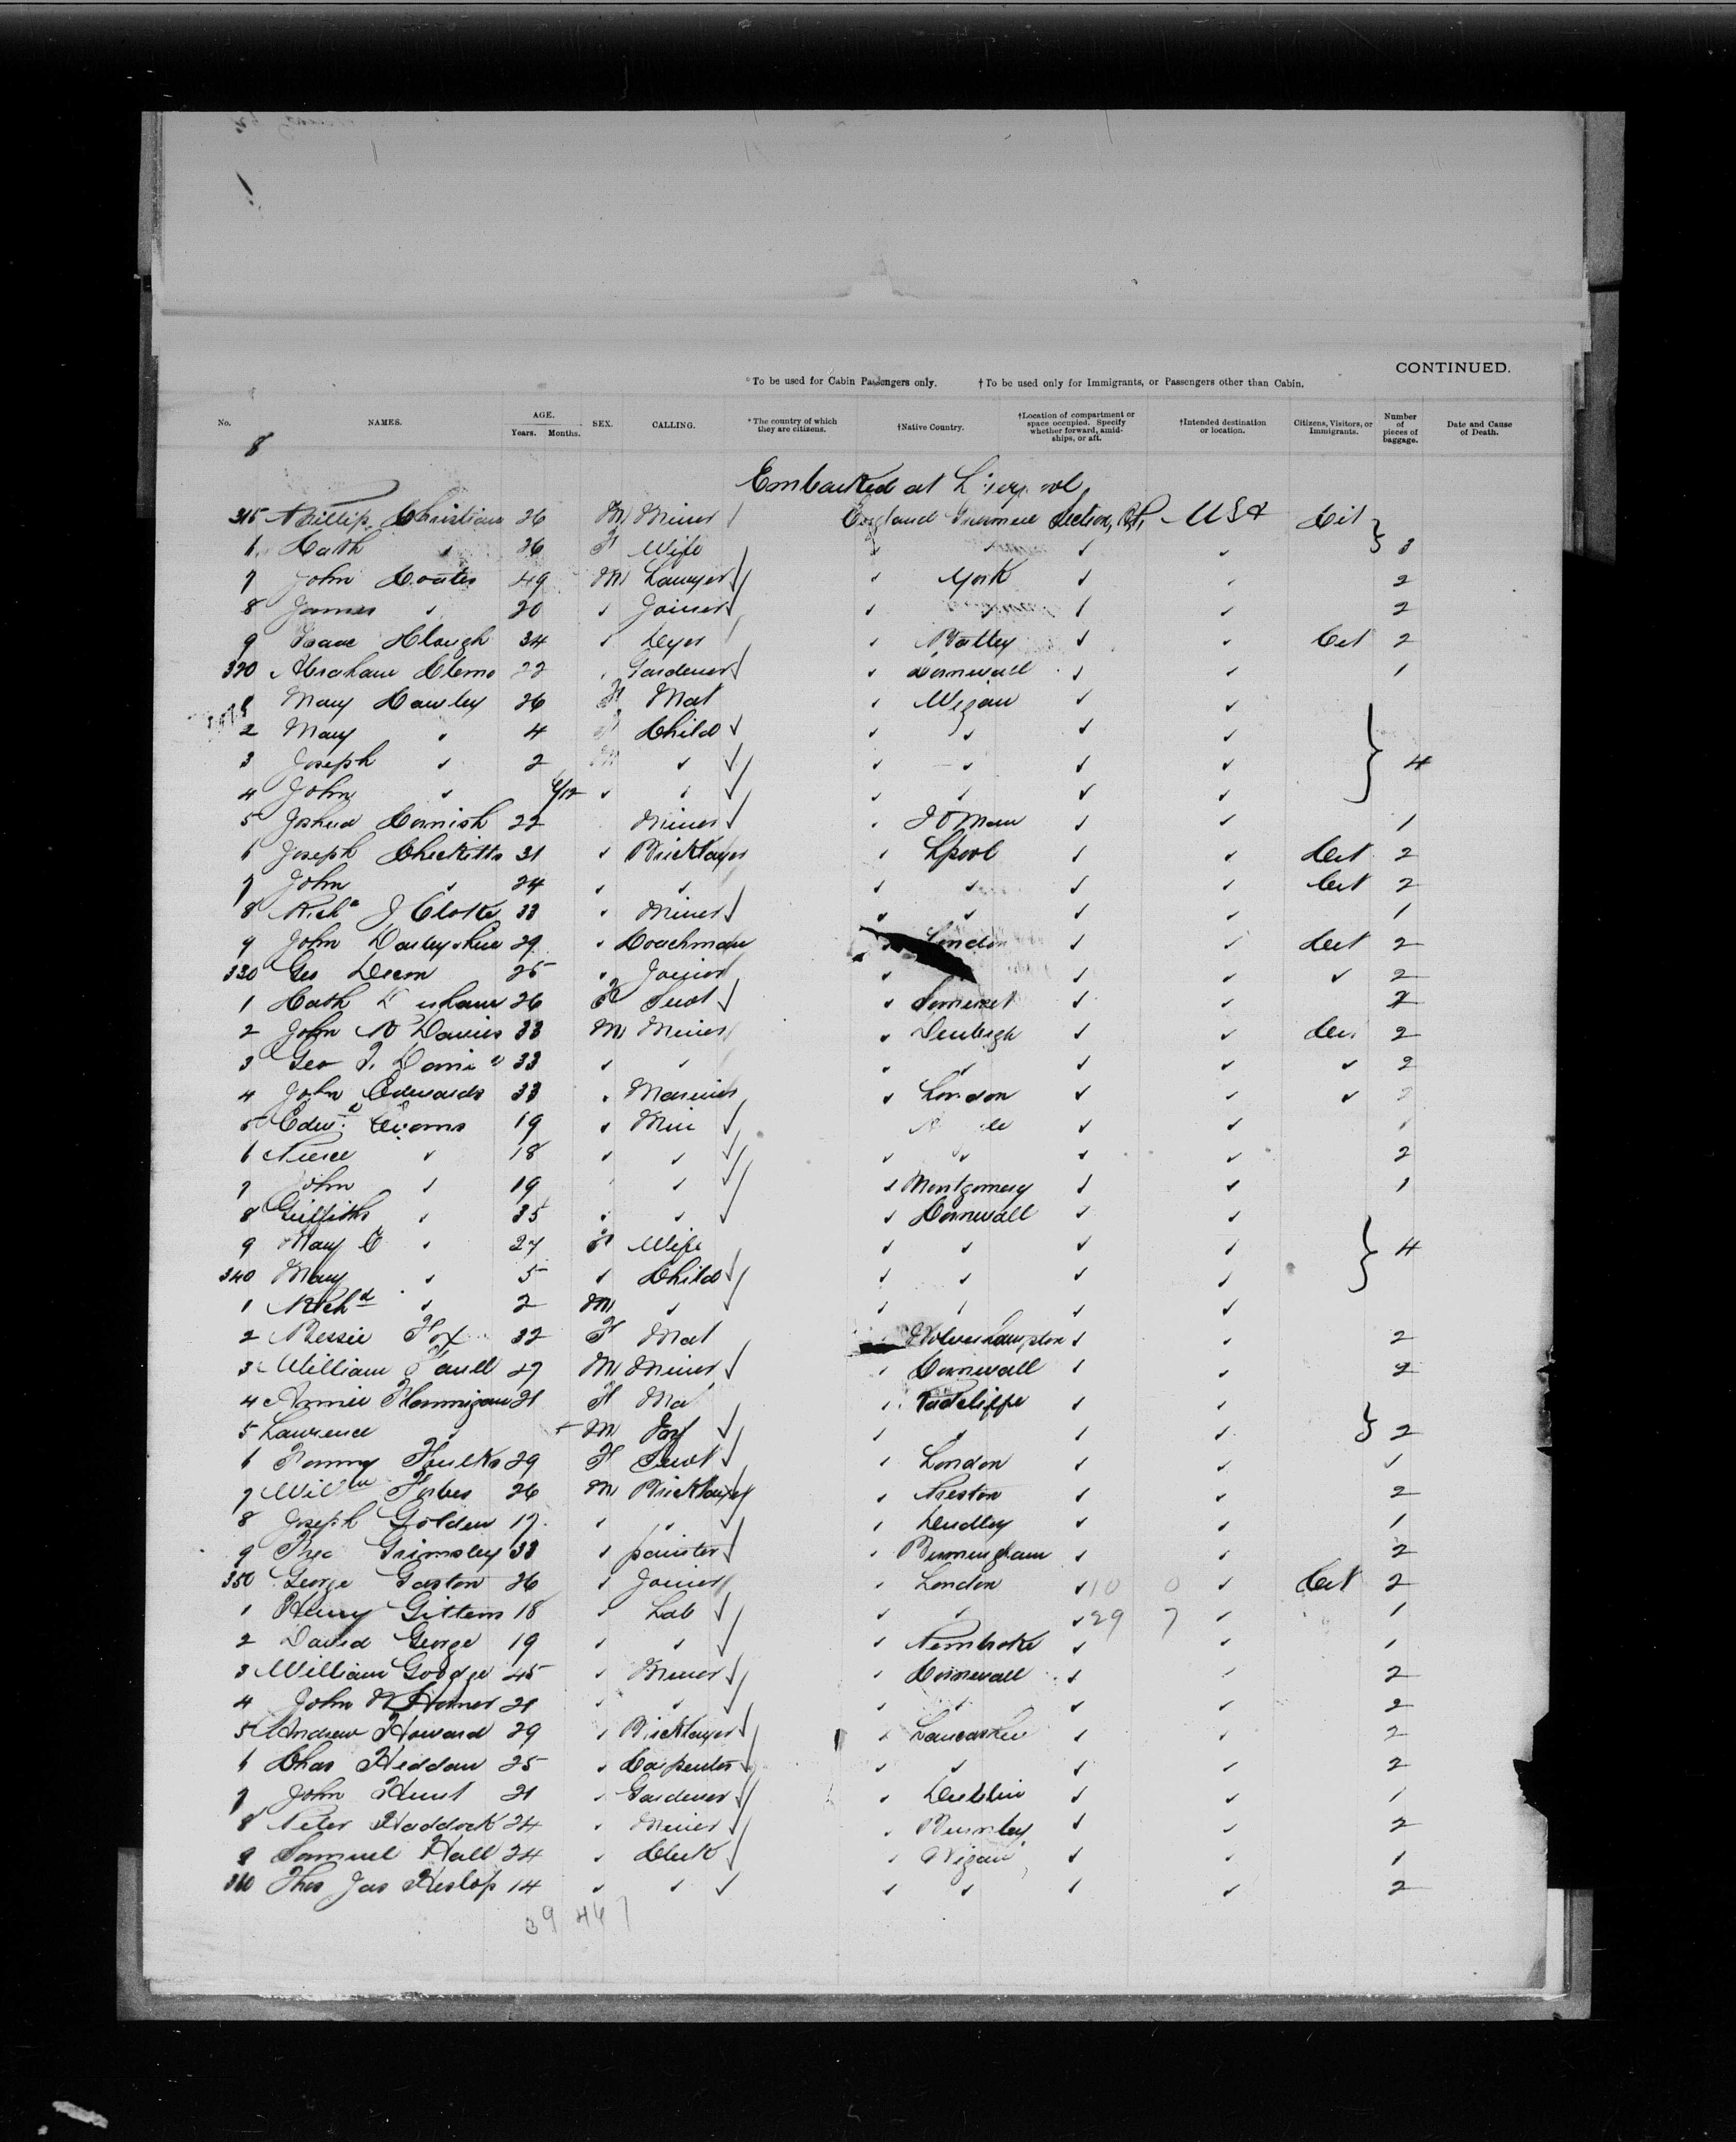 CONTINUED.
*To be used for Cabin Passengers only. †To be used only for Immigrants, or Passengers other than Cabin.
No. NAMES. AGE. Years. Months. SEX. CALLING. *The country of which they are citizens. †Native Country. †Location of compartment or space occupied. Specify whether forward, amidships, or aft. †Intended destination or location. Citizens, Visitors, or Immigrants. Number of pieces of baggage. Date and Cause of Death.
8
Embarked at
315 Phillip Christian 26 M Miner England USA Cit
6 Cath " 26 F Wife 3
7 John Coates 49 M Lawyer York 2
8 James " 20 " Joiner 2
9 Isaac Clough 34 " Dyer " Batley " " Cit 2
320 Abraham Clemo 22 " Gardener " Cornwall " " 1
1 Mary Cawley 26 F Mat " Wigan " "
2 Mary " 4 F Child " " " "
3 Joseph " 2 M " " " " " 4
4 John " "
5 Joshua Cornish 22 Miner " I O Man " " 1
6 Joseph Checketts 31 " Bricklayer " Lpool " " Cit 2
7 John " 24 " " " " " " Cit 2
8 J Cloke 33 " Miner " " " " 1
9 John Darbyshire 29 " Coachman London " " Cit 2
330 Geo 25 " Joiner " " " " 2
1 Cath 26 F Servt " Somerset " " 2
2 John Davies 33 M Miner " Denbigh " " 2
3 Geo 33 " " " " " " " 2
4 John Edwards 33 " Mariner " London " " "
5 Edwd Evans 19 " " "
6 " 18 " " " " " " 2
7 John " 19 " " Montgomery " " 1
8 Griffiths " 35 " " " Cornwall " "
9 Mary E " 27 F Wife " " " " 4
340 Mary " 5 " Child " " " "
1 Richd " 2 M " " " " "
2 Bessie Fox 32 F Mat Wolverhampton " " 2
3 William 27 M Miner " Cornwall " " 2
4 Annie Flannigan 21 F " Radcliffe " "
5 Lawrence " M " " " " 2
6 Fanny Faulks 29 F Servt " London " " 1
7 Willm Forbes 26 M Bricklayer " Preston " " 2
8 Joseph Golden 17 " " " Dudley " " 1
9 Grimsley 33 " painter " Birmingham " " 2
350 George Gaston 26 " Joiner " London " 10 0 " Cit 2
1 Henry Gittens 18 " Lab " " " 29 7 " 1
2 David George 19 " " " Pembroke " " 1
3 William 45 " Miner " Cornwall " " 2
4 John Horner 21 " " " " " " 2
5 Andrew Howard 29 " Bricklayer " Lancashire " " 2
6 Chas Heddan 25 " Carpenter " " " " 2
7 John Hunt 21 " Gardener " Dublin " " 1
8 Peter Haddock 24 " Miner " Burnley " " 2
9 Samuel Hall 24 " Clerk " Wigan " " 1
360 Thos Jas Heslop 14 " " " " " " 2